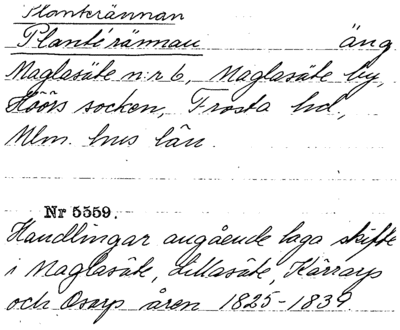 Planterännan
Plantérännan äng
Maglasäte n:r 6, Maglasäte by,
Höörs socken, Frosta hd,
Mlm. hus län.
Nr 5559.
Handlingar angående laga skifte
i Maglasäte, Lillasäte, Kärrarp
och Osarp åren 1825-1839